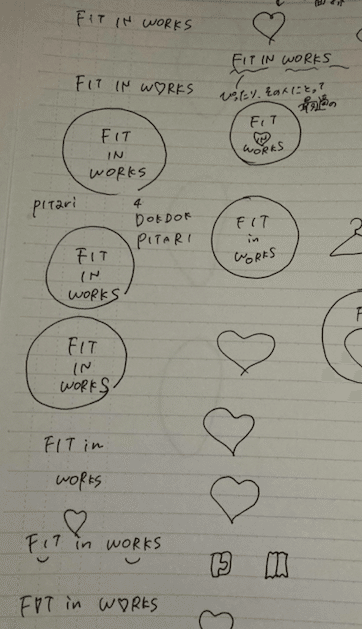 FIT IN WORKS
FIT IN WORKS
FIT IN W♡RKS
ぴったり、その人にとって
最適の
FIT
IN
WORKS
FIT
IN
WORKS
pitari
4
DOKDOK
PITARI
FIT
in
WORKS
FIT
IN
WORKS
FIT
IN
WORKS
FIT in
works
FIT in WORKS
FIT in W♡RKS